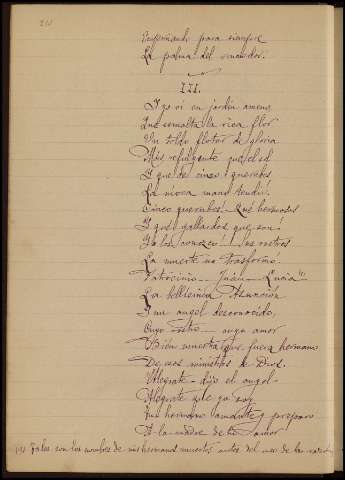 210
Conservando para siempre
La palma del vencedor.
III.
I yo vi en jardin ameno
Que esmalta la rica flor
Un toldo flotar de gloria
Más refulgente que el sol
I que de cinco querubes
La nivea mano tendió.
Cinco querubes! Qué hermosos
I qué gallardos que son!
Yo los conozco sus rostros
La muerte no trasformó.
Patrocinio — Juán — Lucia (1)
La bellísima Asunción
I un angel desconocido,
Cuyo rostro — cuyo amor
Bien muestra que fuera hermano
De esos ministros de Dios.
Alegrate — dijo el angel —
Alegrate que ya soy
Tu hermano amante y preparo
A la madre de tu amor
(1) Tales son los nombres de mis hermanos muertos antes del uso de la razón